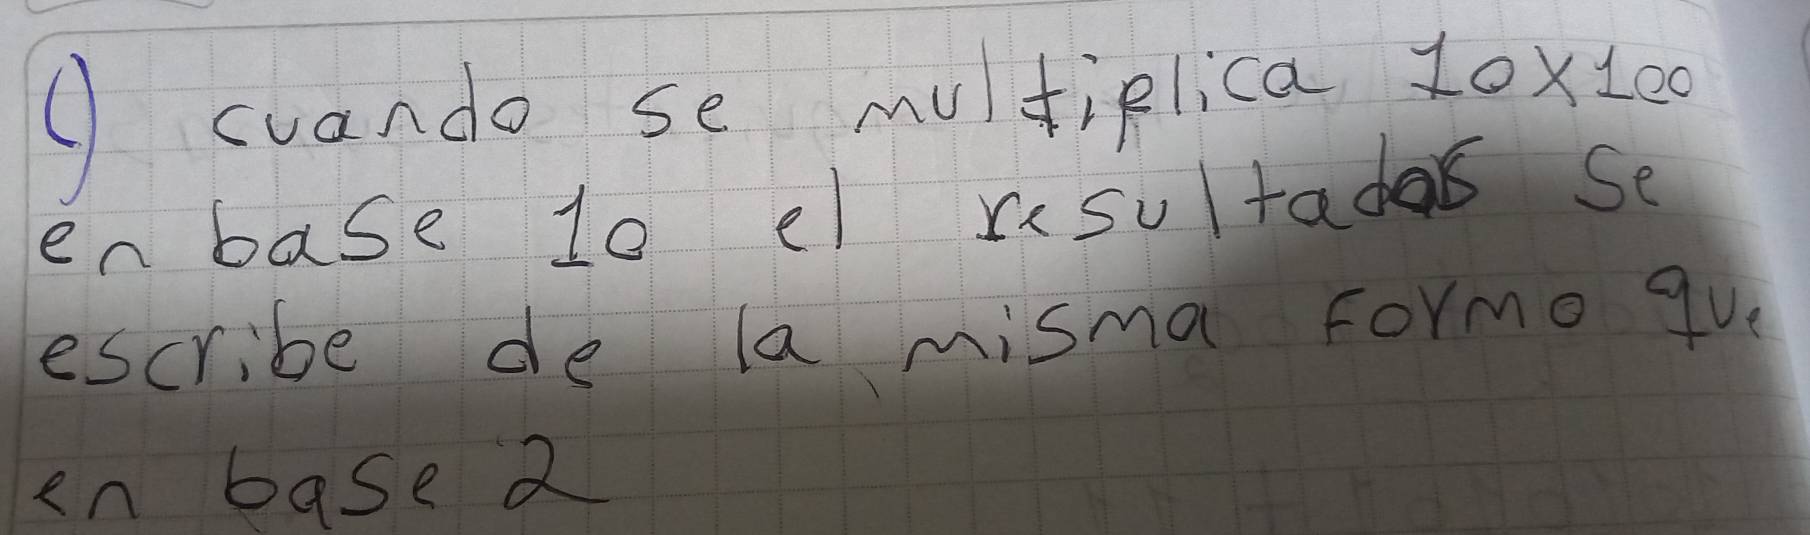 () cuando se multiplica 10x100
en base 10 el resultados se
escribe de la misma formo que
en base 2